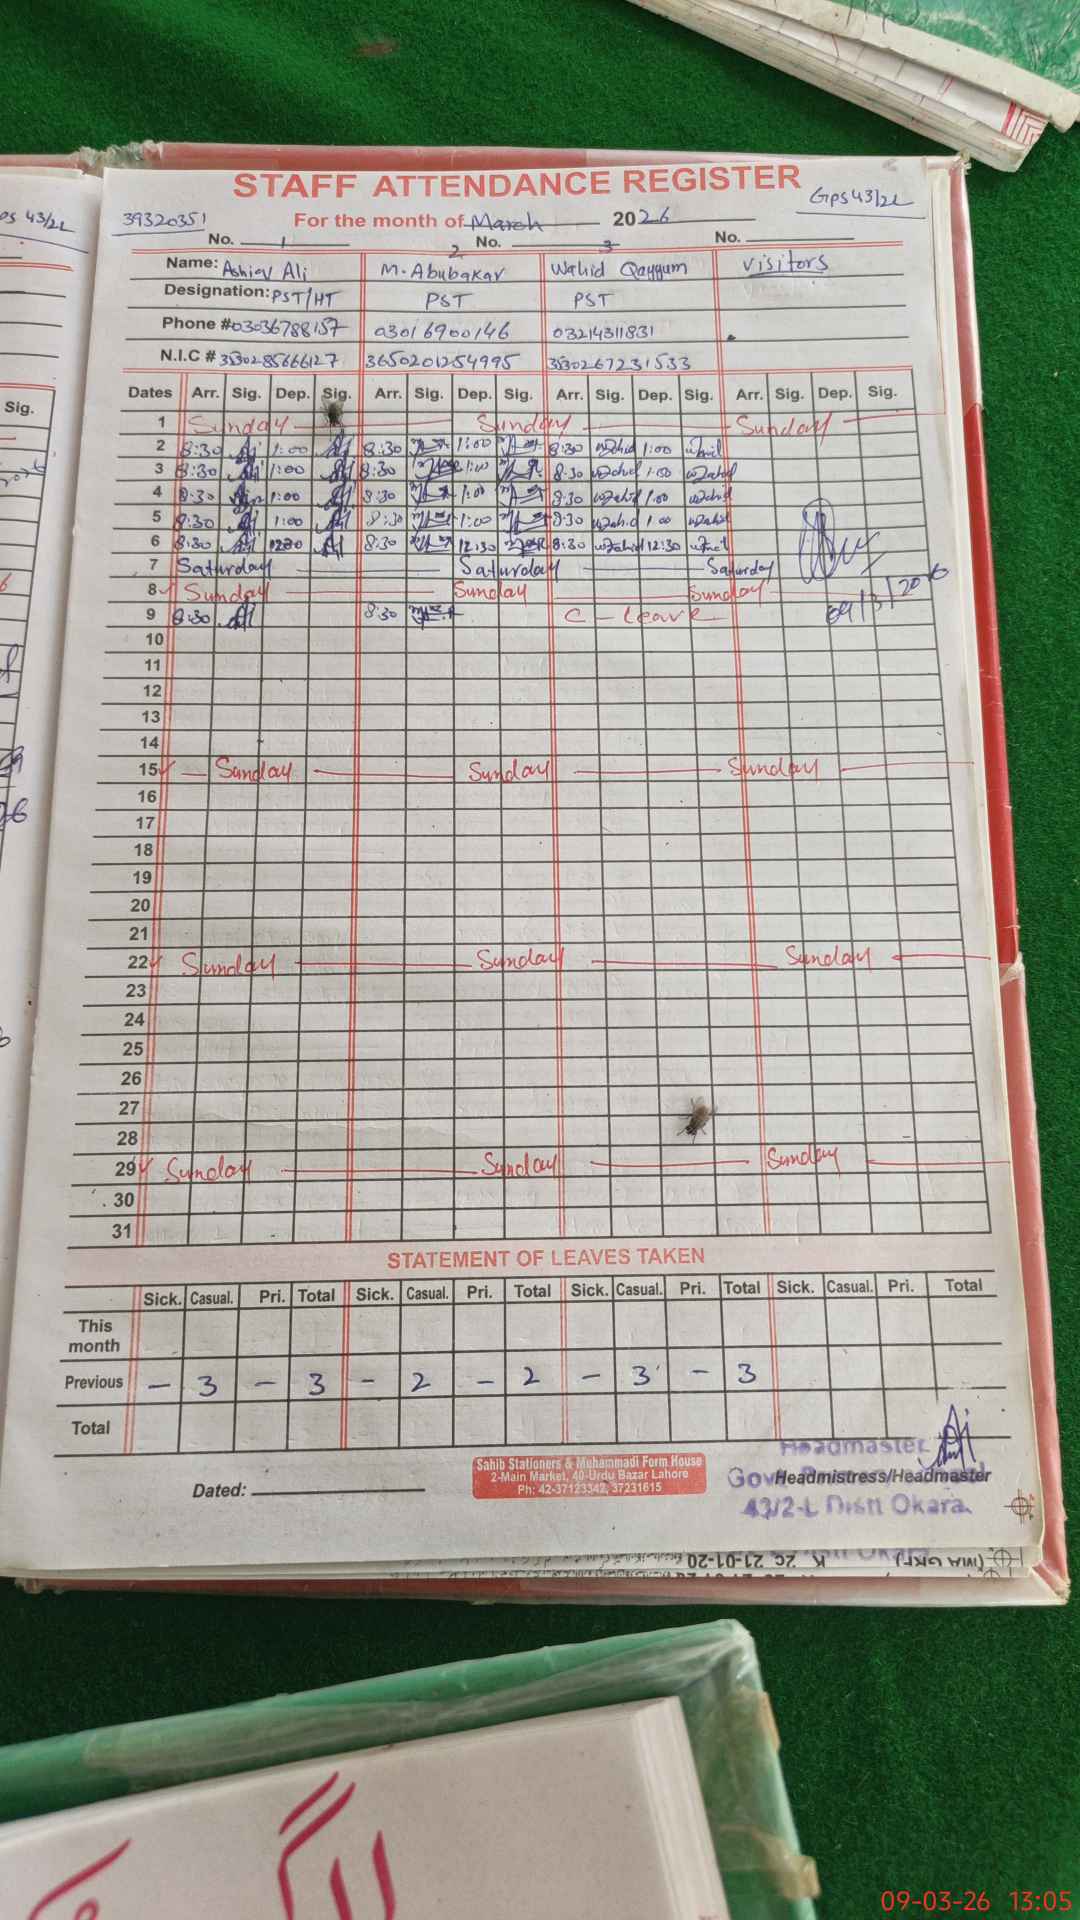 STAFF ATTENDANCE REGISTER
39320351 For the month of March 2026 GPS 43/2L
No. 1 2 No. 3 No.
Name: Ashiq Ali M. Abubakar Wahid Qayyum visitors
Designation: PST/HT PST PST
Phone # 03036788157 03016900146 03214311831
N.I.C # 3530285666127 3650201254995 3530267231533
Dates Arr. Sig. Dep. Sig. Arr. Sig. Dep. Sig. Arr. Sig. Dep. Sig. Arr. Sig. Dep. Sig.
1 Sunday Sunday Sunday
2 8:30 1:00 8:30 1:00 8:30 Wahid 1:00
3 8:30 1:00 8:30 1:00 8:30 Wahid 1:00 Wahid
4 8:30 1:00 8:30 1:00 8:30 Wahid 1:00 Wahid
5 8:30 1:00 8:30 1:00 8:30 Wahid 1:00 Wahid
6 8:30 1230 8:30 12:30 8:30 Wahid 12:30
7 Saturday Saturday Saturday
8 Sunday Sunday Sunday
9 8:30 8:30 C - Leave 09/3/2026
10
11
12
13
14
15 Sunday Sunday Sunday
16
17
18
19
20
21
22 Sunday Sunday Sunday
23
24
25
26
27
28
29 Sunday Sunday Sunday
30
31
STATEMENT OF LEAVES TAKEN
Sick. Casual. Pri. Total Sick. Casual. Pri. Total Sick. Casual. Pri. Total Sick. Casual. Pri. Total
This month
Previous - 3 - 3 - 2 - 2 - 3 - 3
Total
Dated:
Sahib Stationers & Muhammadi Form House
2-Main Market, 40-Urdu Bazar Lahore
Ph: 42-37123342, 37231615
Headmaster
Headmistress/Headmaster
43/2-L Distt Okara.
Sig.
09-03-26 13:05